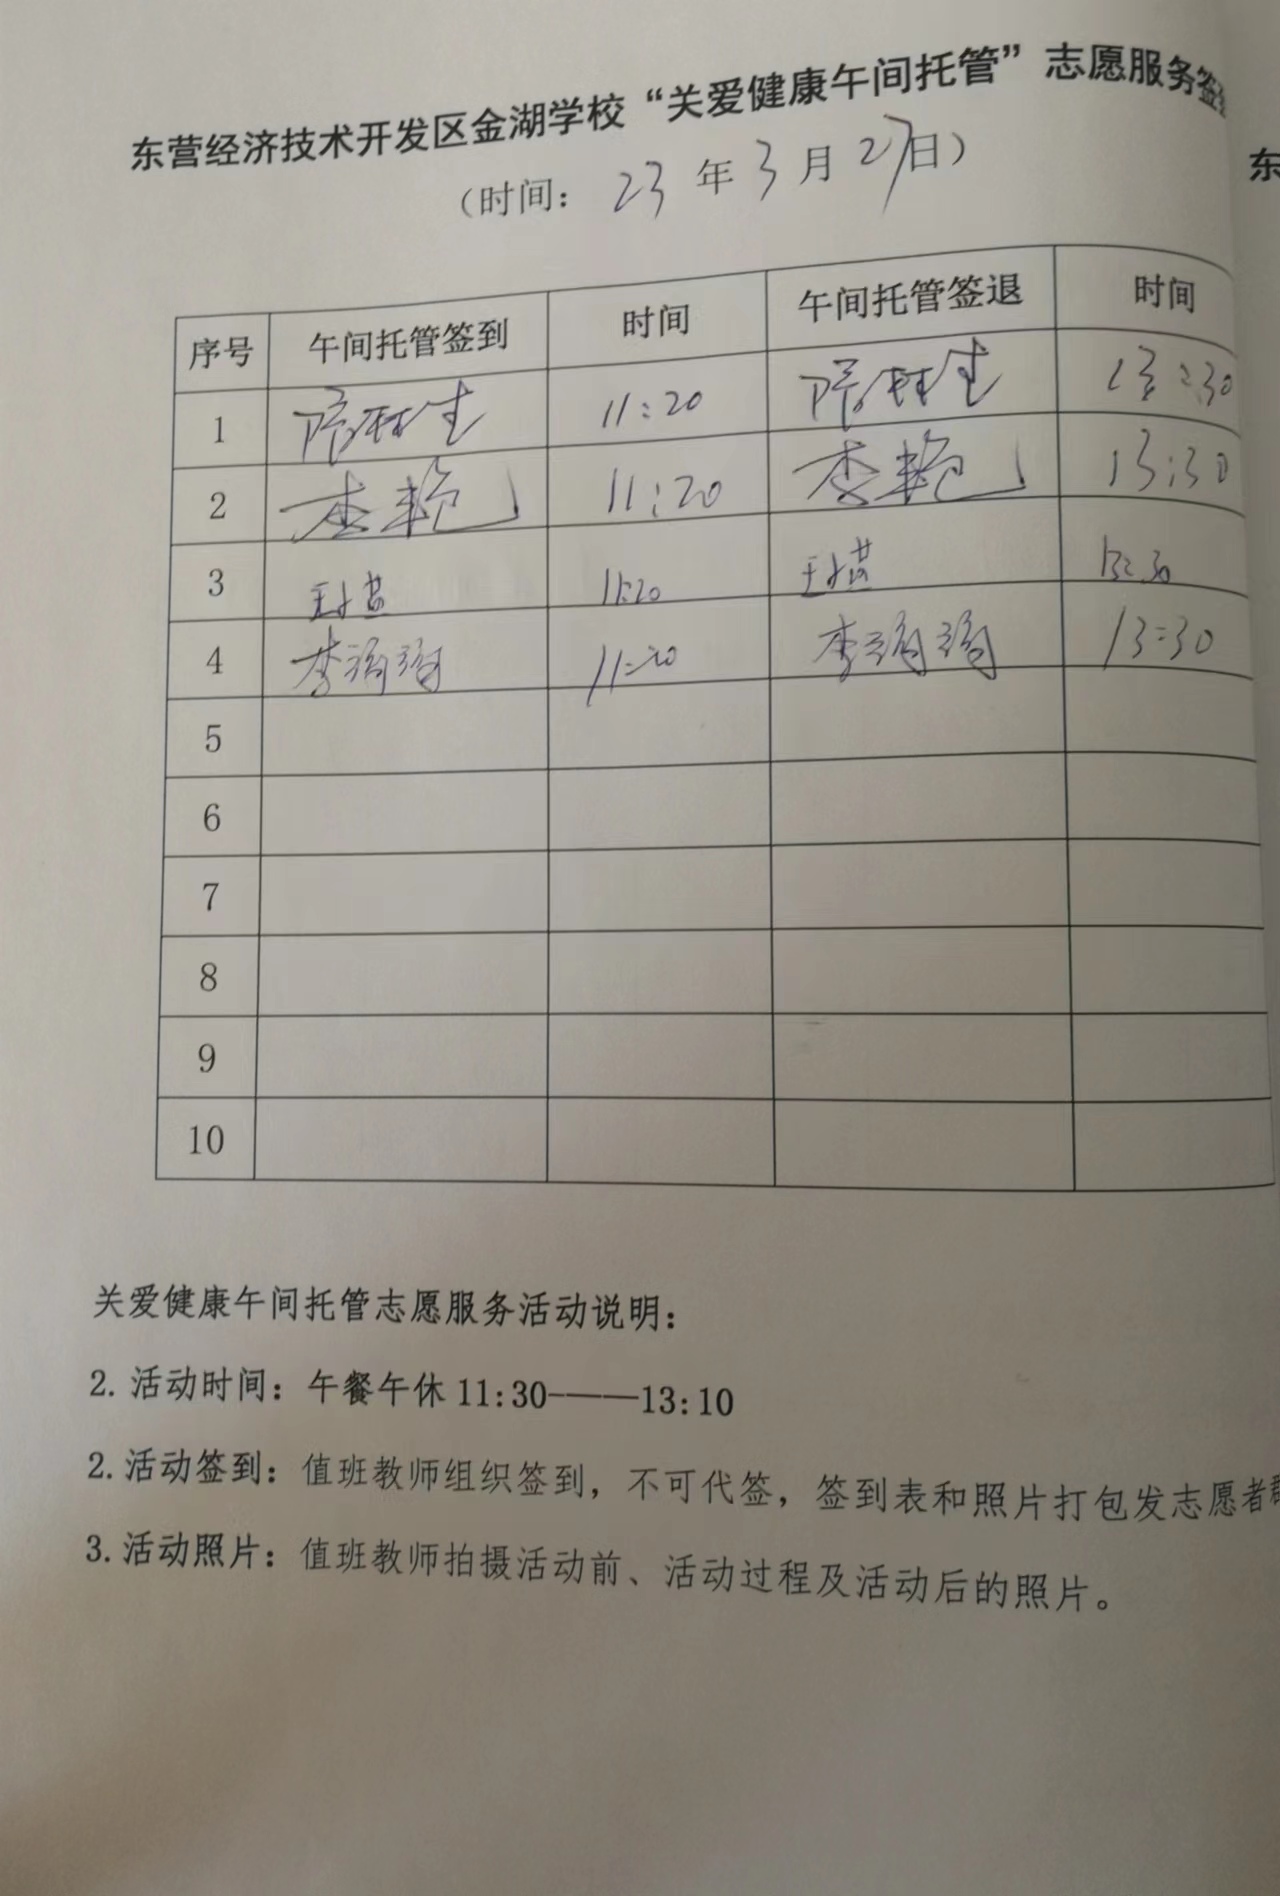 东营经济技术开发区金湖学校“关爱健康午间托管”志愿服务签
（时间：23年3月27日）
东
序号 午间托管签到 时间 午间托管签退 时间
1 11:20 13:30
2 李艳 11:20 李艳 13:30
3 11:20 13:30
4 李 11:20 李 13:30
5
6
7
8
9
10
关爱健康午间托管志愿服务活动说明：
2. 活动时间：午餐午休 11:30——13:10
2. 活动签到：值班教师组织签到，不可代签，签到表和照片打包发志愿者
3. 活动照片：值班教师拍摄活动前、活动过程及活动后的照片。